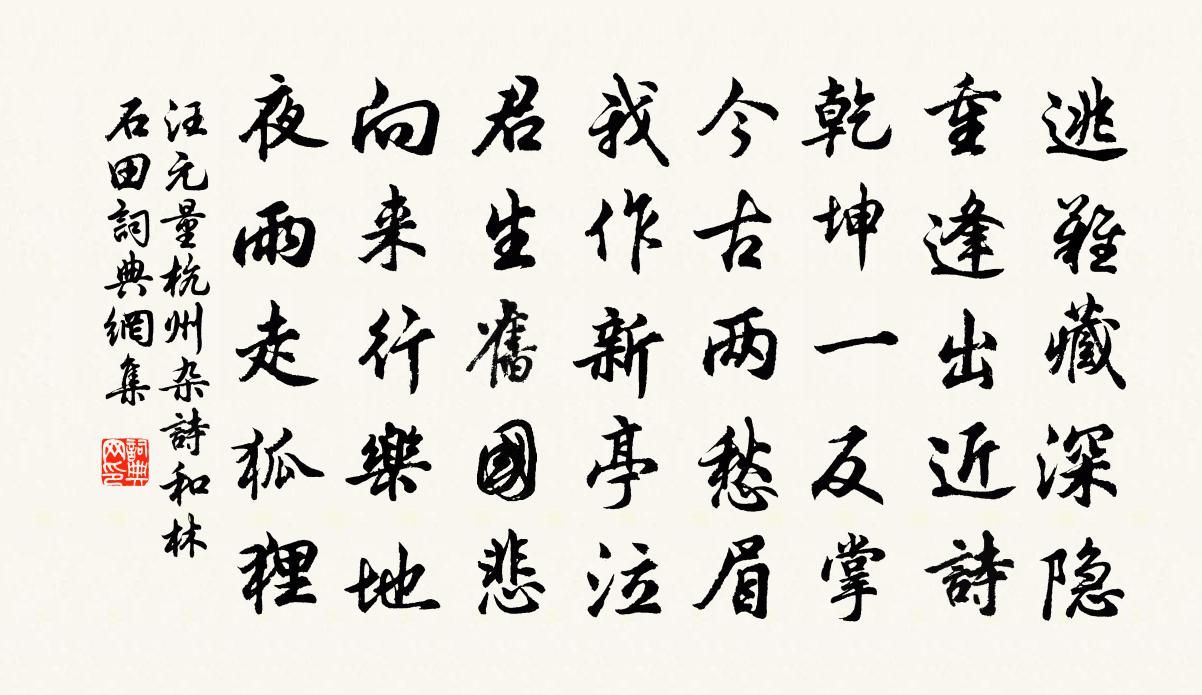 逃難藏深隐
重逢出近詩
乾坤一反掌
今古两愁眉
我作新亭泣
君生舊國悲
向来行樂地
夜雨走狐狸
汪元量杭州杂詩和林
石田詞典網集
詞典
网印